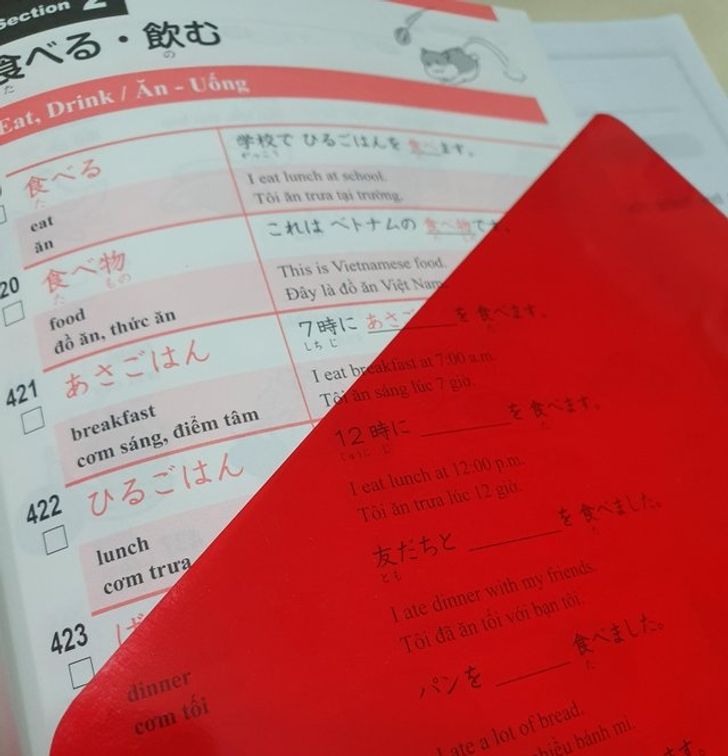 Section 2
食べる・飲む
た
の
Eat, Drink / Ăn - Uống
食べる
た
eat
ăn
学校で ひるごはんを 食べます。
がっこう
I eat lunch at school.
Tôi ăn trưa tại trường.
20
食べ物
た もの
food
đồ ăn, thức ăn
これは ベトナムの 食べ物です。
This is Vietnamese food.
Đây là đồ ăn Việt Nam.
421
あさごはん
breakfast
cơm sáng, điểm tâm
7時に あさご を 食べます。
しちじ
た
I eat breakfast at 7:00 a.m.
Tôi ăn sáng lúc 7 giờ.
422
ひるごはん
lunch
cơm trưa
12時に ______ を 食べます。
じゅうにじ
た
I eat lunch at 12:00 p.m.
Tôi ăn trưa lúc 12 giờ.
423
ば
dinner
cơm tối
友だちと ______ を 食べました。
とも
た
I ate dinner with my friends.
Tôi đã ăn tối với bạn tôi.
パンを ______ 食べました。
た
I ate a lot of bread.
nhiều bánh mì.
ます。